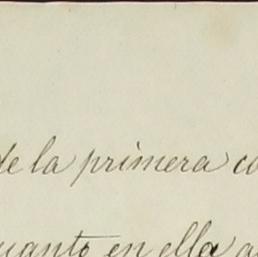 de la primera co
uanto en ella a